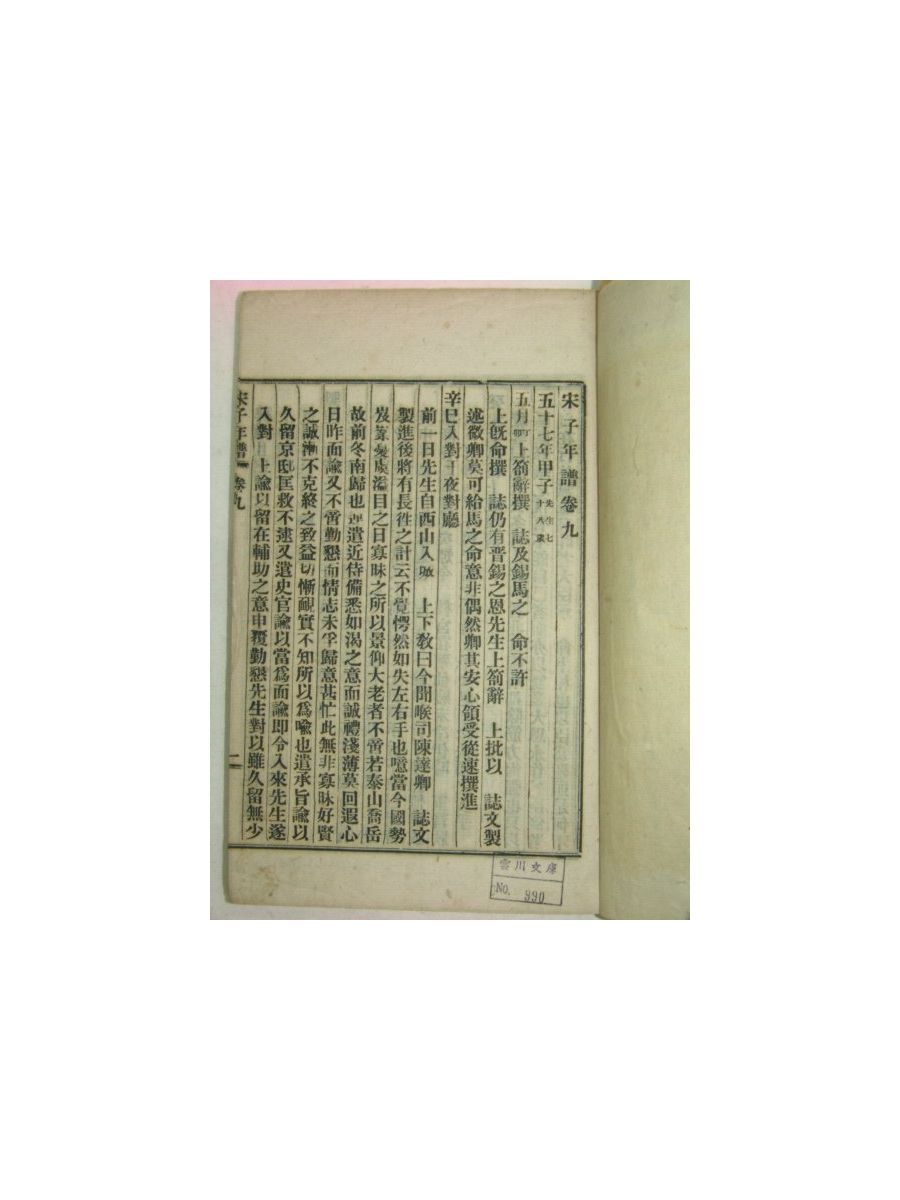 宋子年譜卷九
五十七年甲子先生七十八歲
五月上箚辭撰 誌及錫馬之 命不許
上旣命撰 誌仍有晋錫之恩先生上箚辭 上批以 誌文製
述微卿莫可給馬之命意非偶然卿其安心領受從速撰進
辛巳入對于夜對廳
前一日先生自西山入城 上下敎曰今聞喉司陳達卿 誌文
製進後將有長徃之計云不覺愕然如失左右手也噫當今國勢
岌業憂虞溢目之日寡昧之所以景仰大老者不啻若泰山喬岳
故前冬南歸也遣近侍備悉如渴之意而誠禮淺薄莫回遐心
日昨面諭又不啻勤懇而情志未孚歸意甚忙此無非寡昧好賢
之誠不克終之致益切慚靦實不知所以爲喩也遣承旨諭以
久留京邸匡救不逮又遣史官諭以當爲面諭卽令入來先生遂
入對 上諭以留在輔助之意申覆勤懇先生對以雖久留無少
宋子年譜 卷九
雲川文庫
No. 990